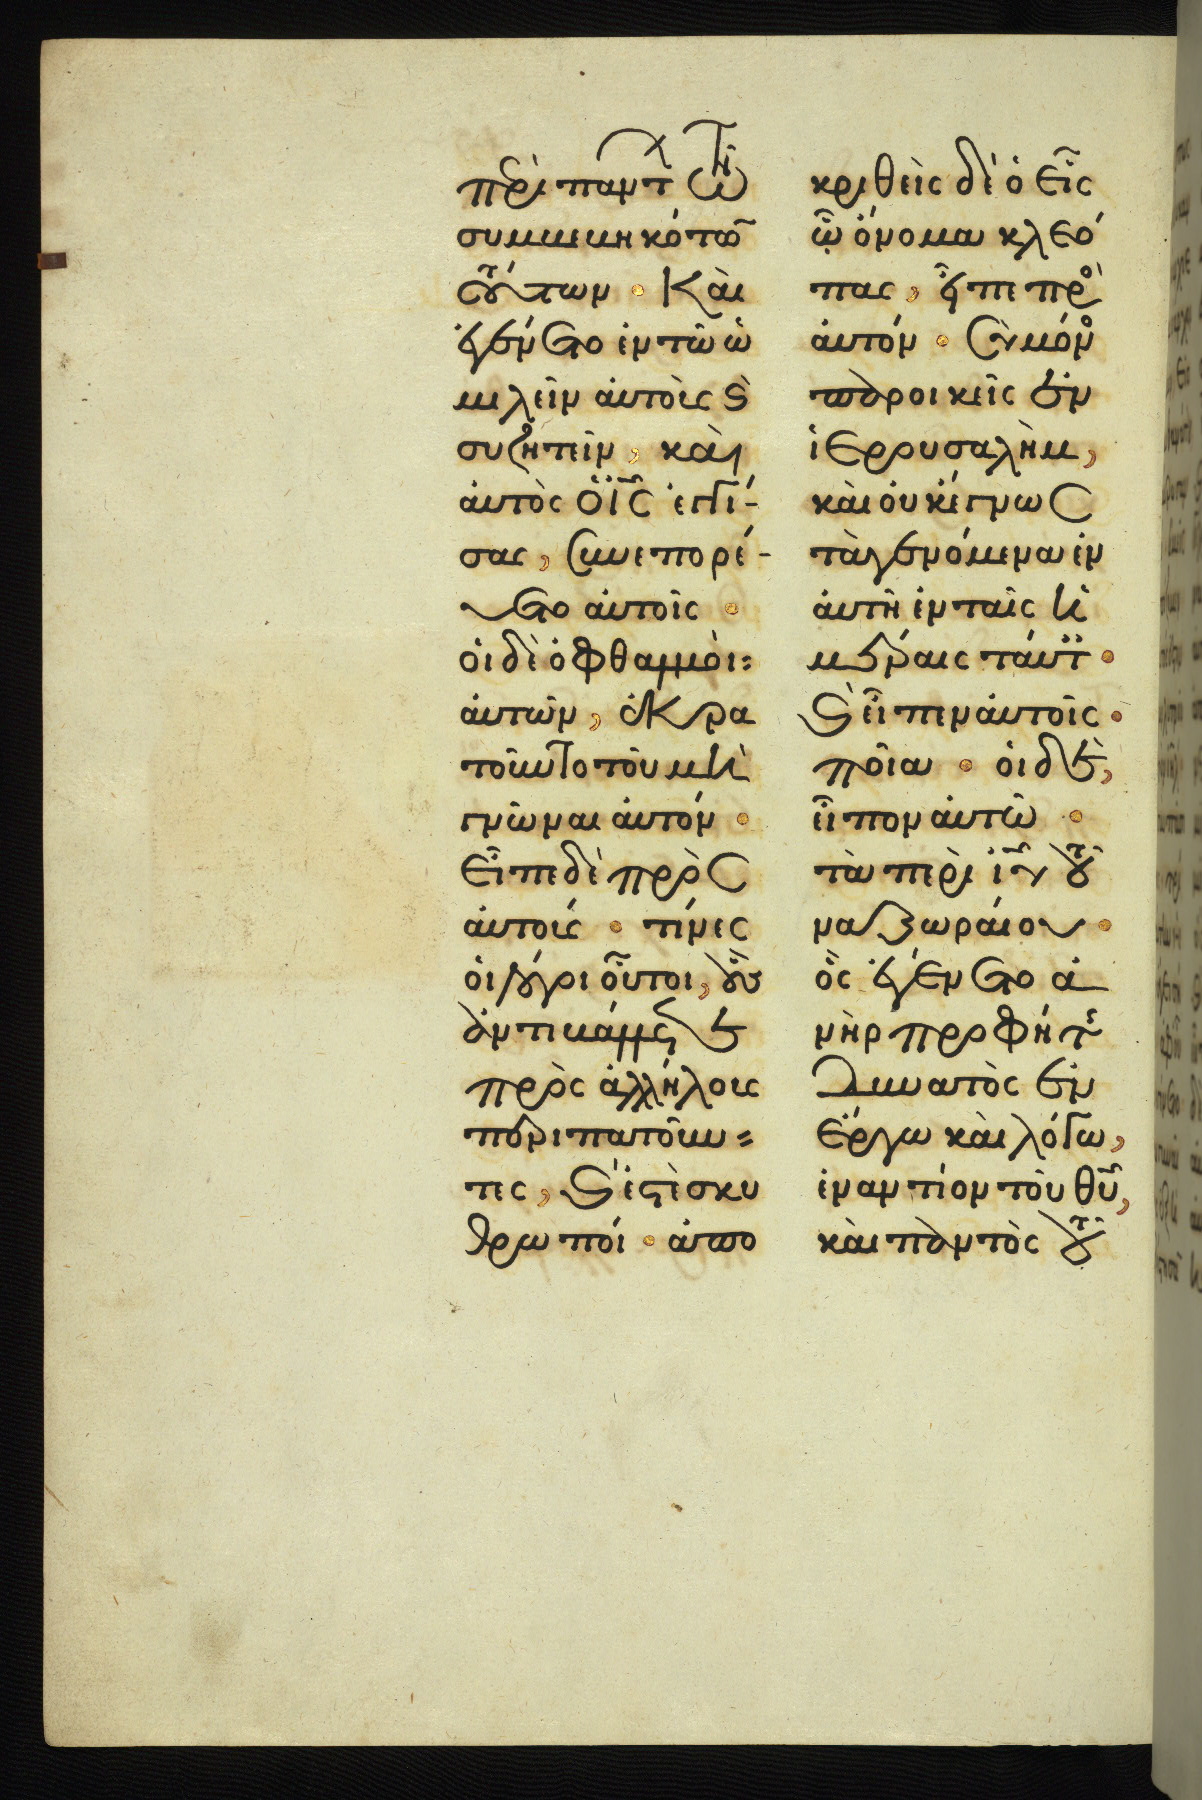 περὶ πάντων τῶν
συμβεβηκότων
τούτων · Καὶ
ἐγένετο ἐν τῶ ὁ
μιλεῖν αὐτοὺς καὶ
συζητεῖν, καὶ
αὐτὸς ὁ ἰς ἐγγί-
σας, συνεπορεύ-
ετο αὐτοῖς ·
οἱ δὲ ὀφθαλμοὶ
αὐτῶν, ἐκρα
τοῦντο τοῦ μὴ
γνῶναι αὐτόν ·
Εἶπε δὲ πρὸς
αὐτούς · τίνες
οἱ λόγοι οὗτοι, οὓς
ἀντιβάλλετε
πρὸς ἀλλήλους
περιπατοῦν
τες, καὶ ἐστὲ σκυ
θρωποί · ἀπο
κριθεὶς δὲ ὁ εἷς
ὧ ὄνομα κλεό
πας, εἶπε πρὸς
αὐτόν · Σὺ μόνος
παροικεῖς ἐν
ἱερουσαλὴμ,
καὶ οὐκ ἔγνως
τὰ γενόμενα ἐν
αὐτῆ ἐν ταῖς ἡ
μέραις ταύταις ·
καὶ εἶπεν αὐτοῖς ·
ποῖα · οἱ δὲ,
εἶπον αὐτῶ ·
τὰ περὶ ἰυ τοῦ
ναζωραίου ·
ὃς ἐγένετο ἀ
νὴρ προφήτης
δυνατὸς ἐν
ἔργω καὶ λόγω,
ἐναντίον τοῦ θυ,
καὶ παντὸς τοῦ